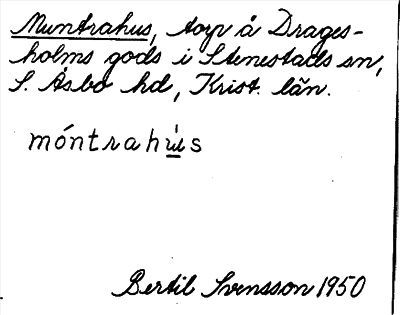 Muntrahus, torp å Drages-
holms gods i Stenestads sn,
S. Åsbo hd, Krist. län.
móntrahu̲̇s
Bertil Svensson 1950